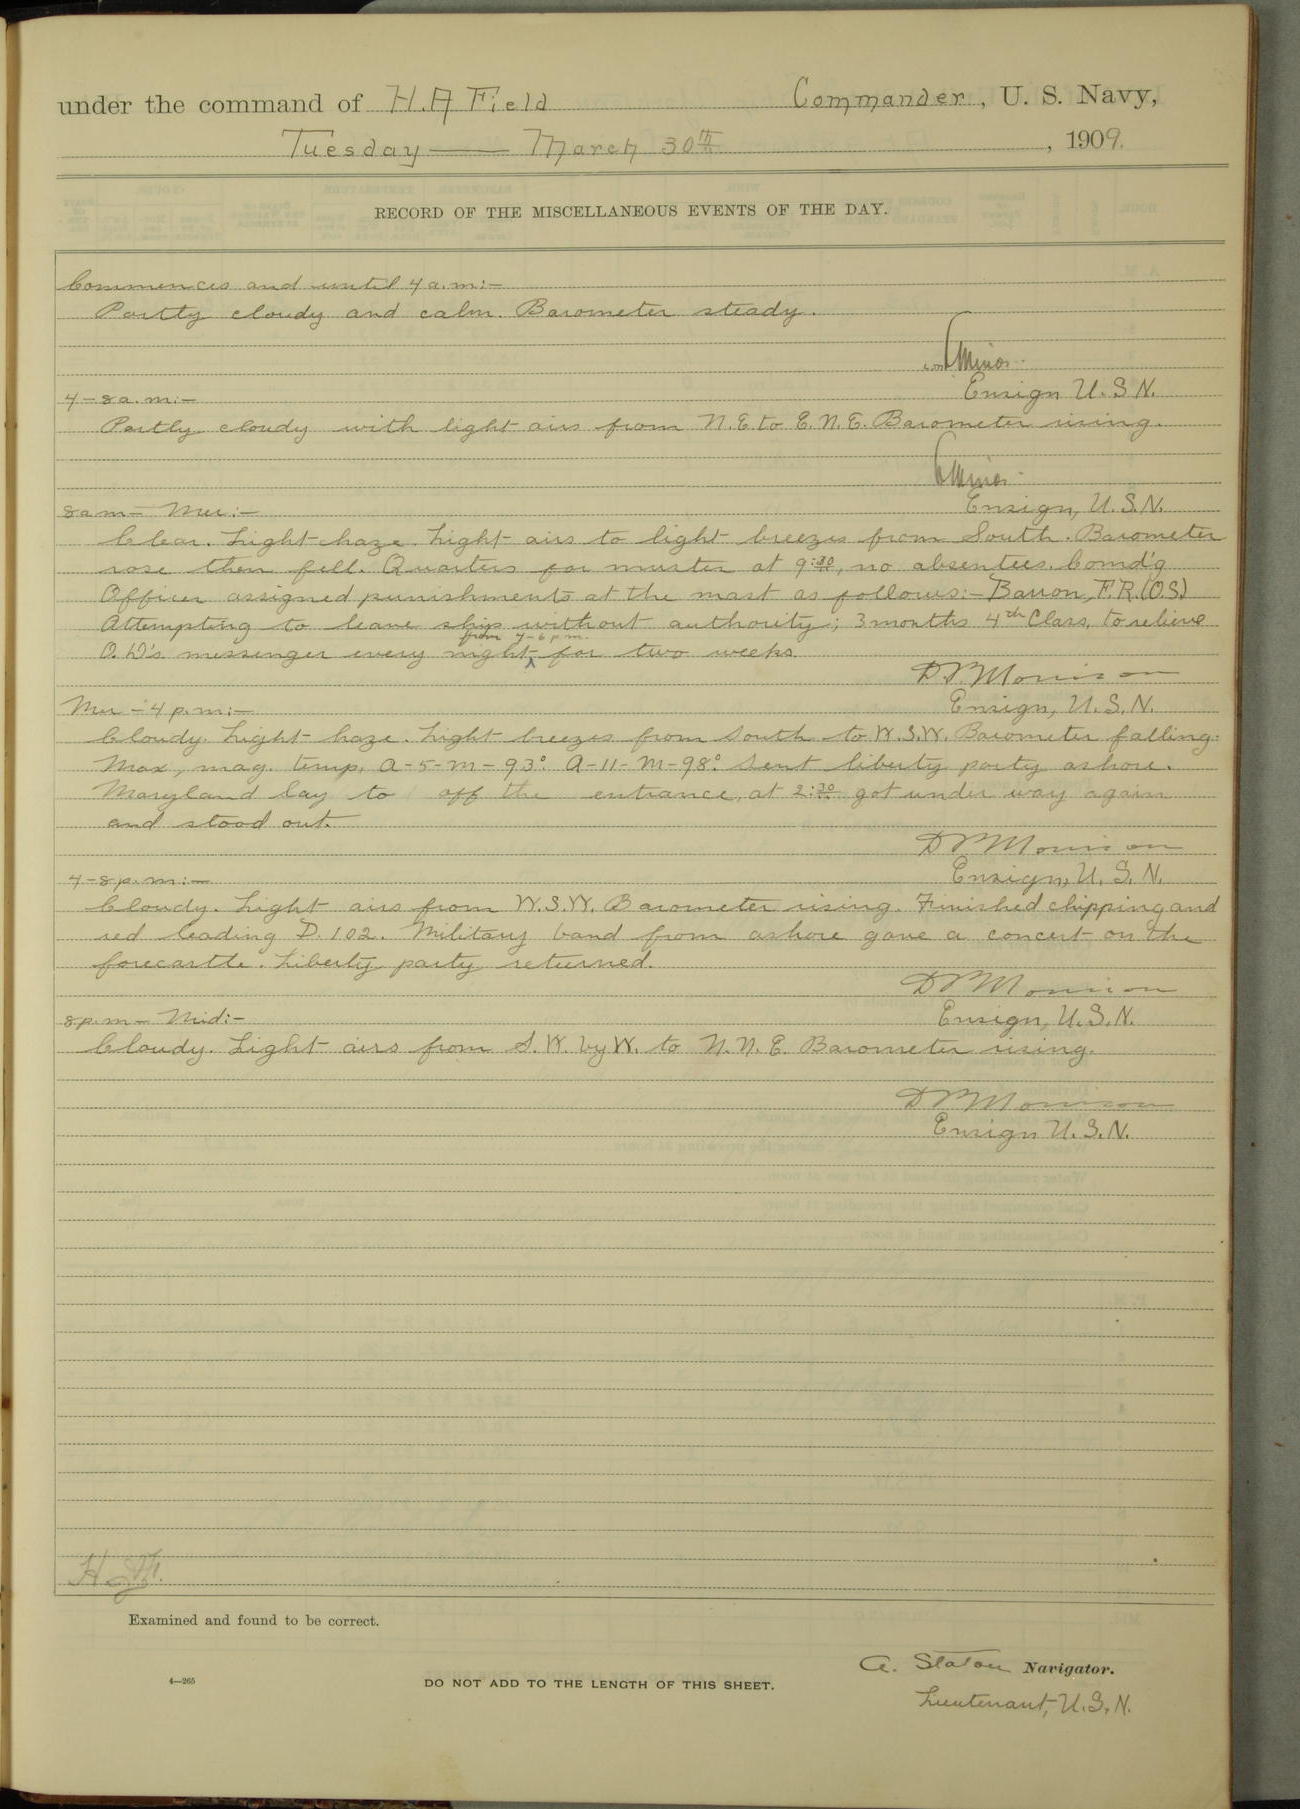 under the command of H. A Field Commander, U. S. Navy,
Tuesday — March 30th, 1909.
RECORD OF THE MISCELLANEOUS EVENTS OF THE DAY.
Commences and until 4 a.m:-
Partly cloudy and calm. Barometer steady.
Minor
Ensign U.S.N.
4-8a.m:-
Partly cloudy with light airs from N.E. to E.N.E. Barometer rising.
Minor
Ensign, U.S.N.
8am- Mer:-
Clear. Light haze. Light airs to light breezes from South. Barometer
rose then fell. Quarters for muster at 9:30, no absentees. Comd'g
Officer assigned punishments at the mast as follows:- Barron, F.R. (O.S.)
Attempting to leave ship without authority; 3 months 4th Class, to relieve
from 4-6 p.m.
O.D's messenger every night ^ for two weeks.
D P Morrison
Ensign, U.S.N.
Mer - 4 p.m:-
Cloudy. Light haze. Light breezes from South to W.S.W. Barometer falling.
Max, mag. temp, A-5-M-93° A-11-M-98° Sent liberty party ashore.
Maryland lay to off the entrance, at 2:30 got under way again
and stood out.
D P Morrison
Ensign, U.S.N.
4-8p.m:-
Cloudy. Light airs from W.S.W. Barometer rising. Finished chipping and
red leading D.102. Military band from ashore gave a concert on the
forecastle. Liberty party returned.
D P Morrison
Ensign, U.S.N.
8p.m- Mid:-
Cloudy. Light airs from S.W. by W. to N.N.E. Barometer rising.
D P Morrison
Ensign U.S.N.
Examined and found to be correct.
A. Staton Navigator.
4—265
DO NOT ADD TO THE LENGTH OF THIS SHEET.
Lieutenant, U.S.N.